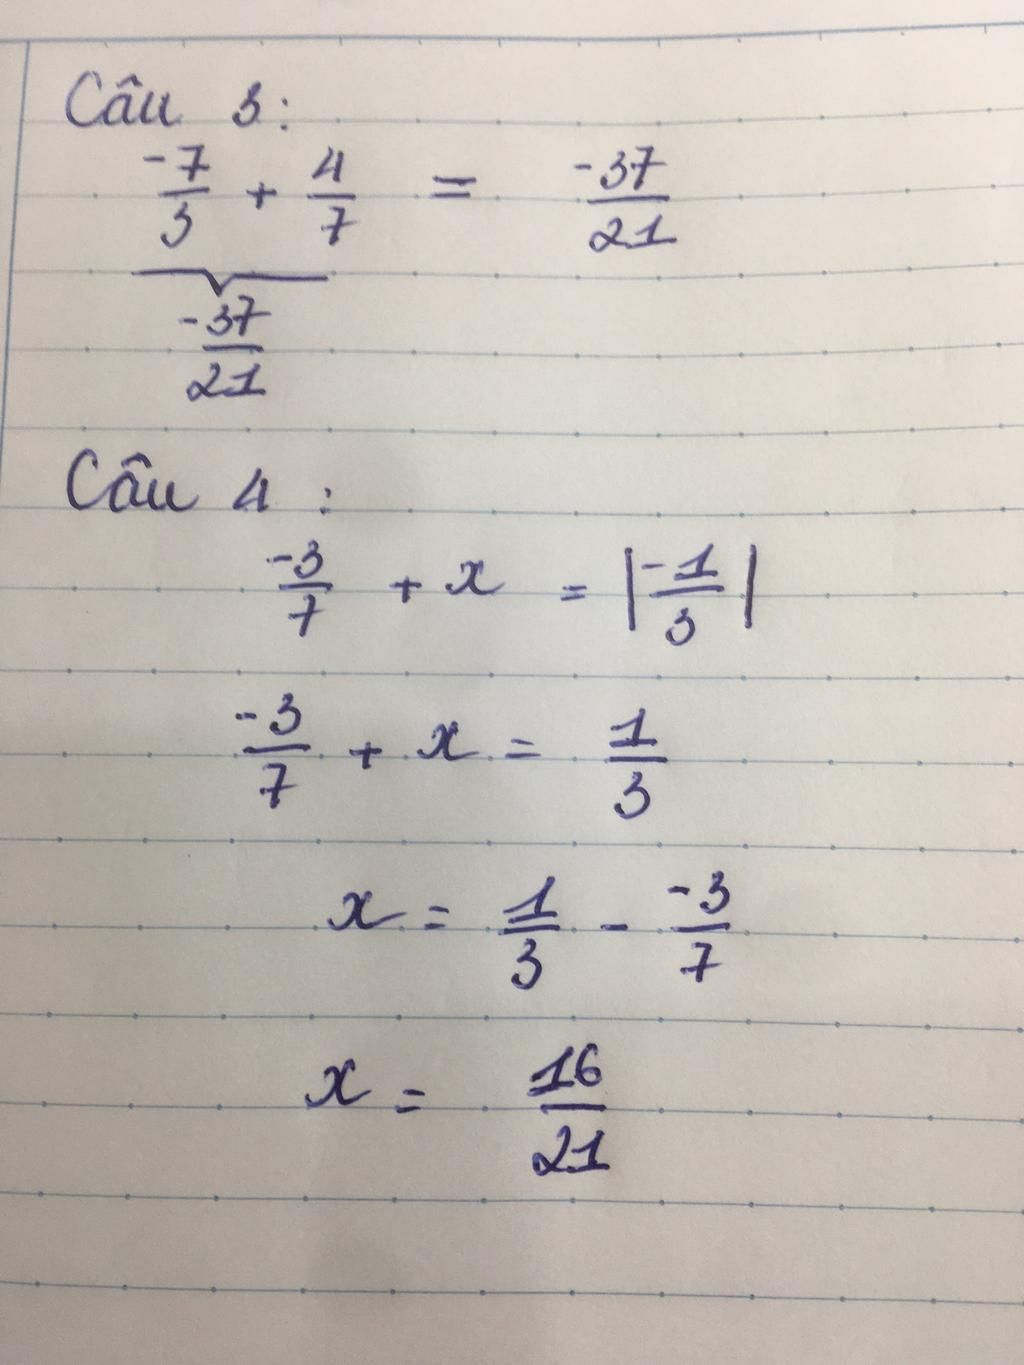 Câu 3:
-7/3 + 4/7 = -37/21
-37/21
Câu 4:
-3/7 + x = |-1/3|
-3/7 + x = 1/3
x = 1/3 - -3/7
x = 16/21